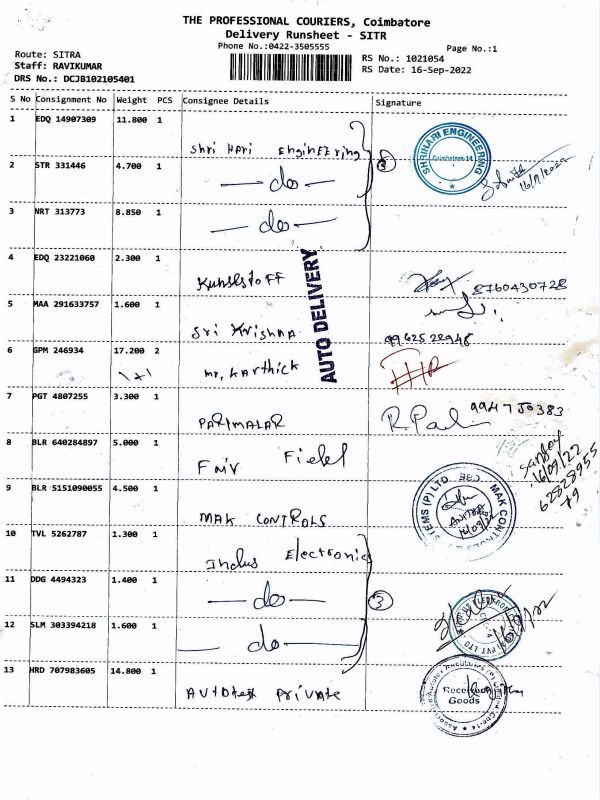 THE PROFESSIONAL COURIERS, Coimbatore
Delivery Runsheet - SITR
Phone No.:0422-3505555
Page No.:1
Route: SITRA
Staff: RAVIKUMAR
DRS No.: DCJB102105401
RS No.: 1021054
RS Date: 16-Sep-2022
S No Consignment No Weight PCS Consignee Details Signature
1 EDQ 14907309 11.800 1
Shri Hari Engineering
SHRIHARI ENGINEERING
Coimbatore-14
16/9/2022
2 STR 331446 4.700 1
— do —
3
3 NRT 313773 8.850 1
— do —
4 EDQ 23221060 2.300 1
Kunststoff
8760430728
AUTO DELIVERY
5 MAA 291633757 1.600 1
Sri Krishna
9962522948
6 GPM 246934 17.200 2
1+1
Mr. Karthick
7 PGT 4807255 3.300 1
PARIMALAR
R. Pal
8 BLR 640284897 5.000 1
Fair Field
Sanjay
16/09/22
9 BLR 5151090055 4.500 1
MAK CONTROLS
MAK CONTROLS
STEMS (P) LTD
16/09/22
10 TVL 5262787 1.300 1
Indus Electronic
11 DDG 4494323 1.400 1
— do —
3
12 SLM 303394218 1.600 1
— do —
PVT LTD
13 HRD 707983605 14.800 1
Autotex Private
Received
Goods